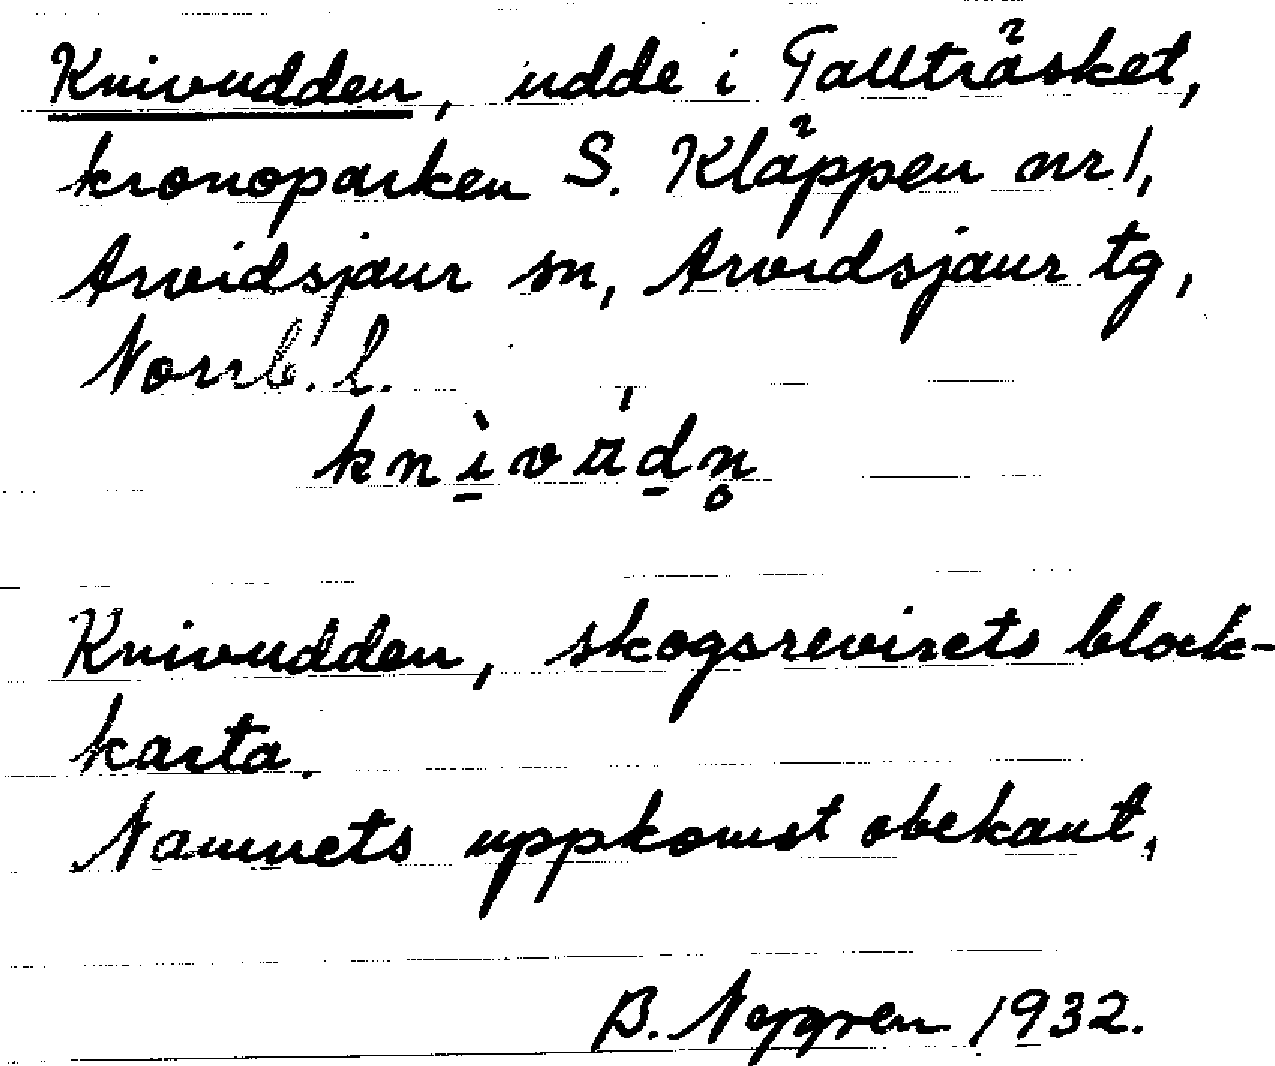 Knivudden, udde i Tallträsket,
kronoparken S. Kläppen nr 1,
Arvidsjaur sn, Arvidsjaur tg,
Norrb. l.
Knivudden, skogsrevirets block-
karta.
Namnets uppkomst obekant,
B. Nygren 1932.